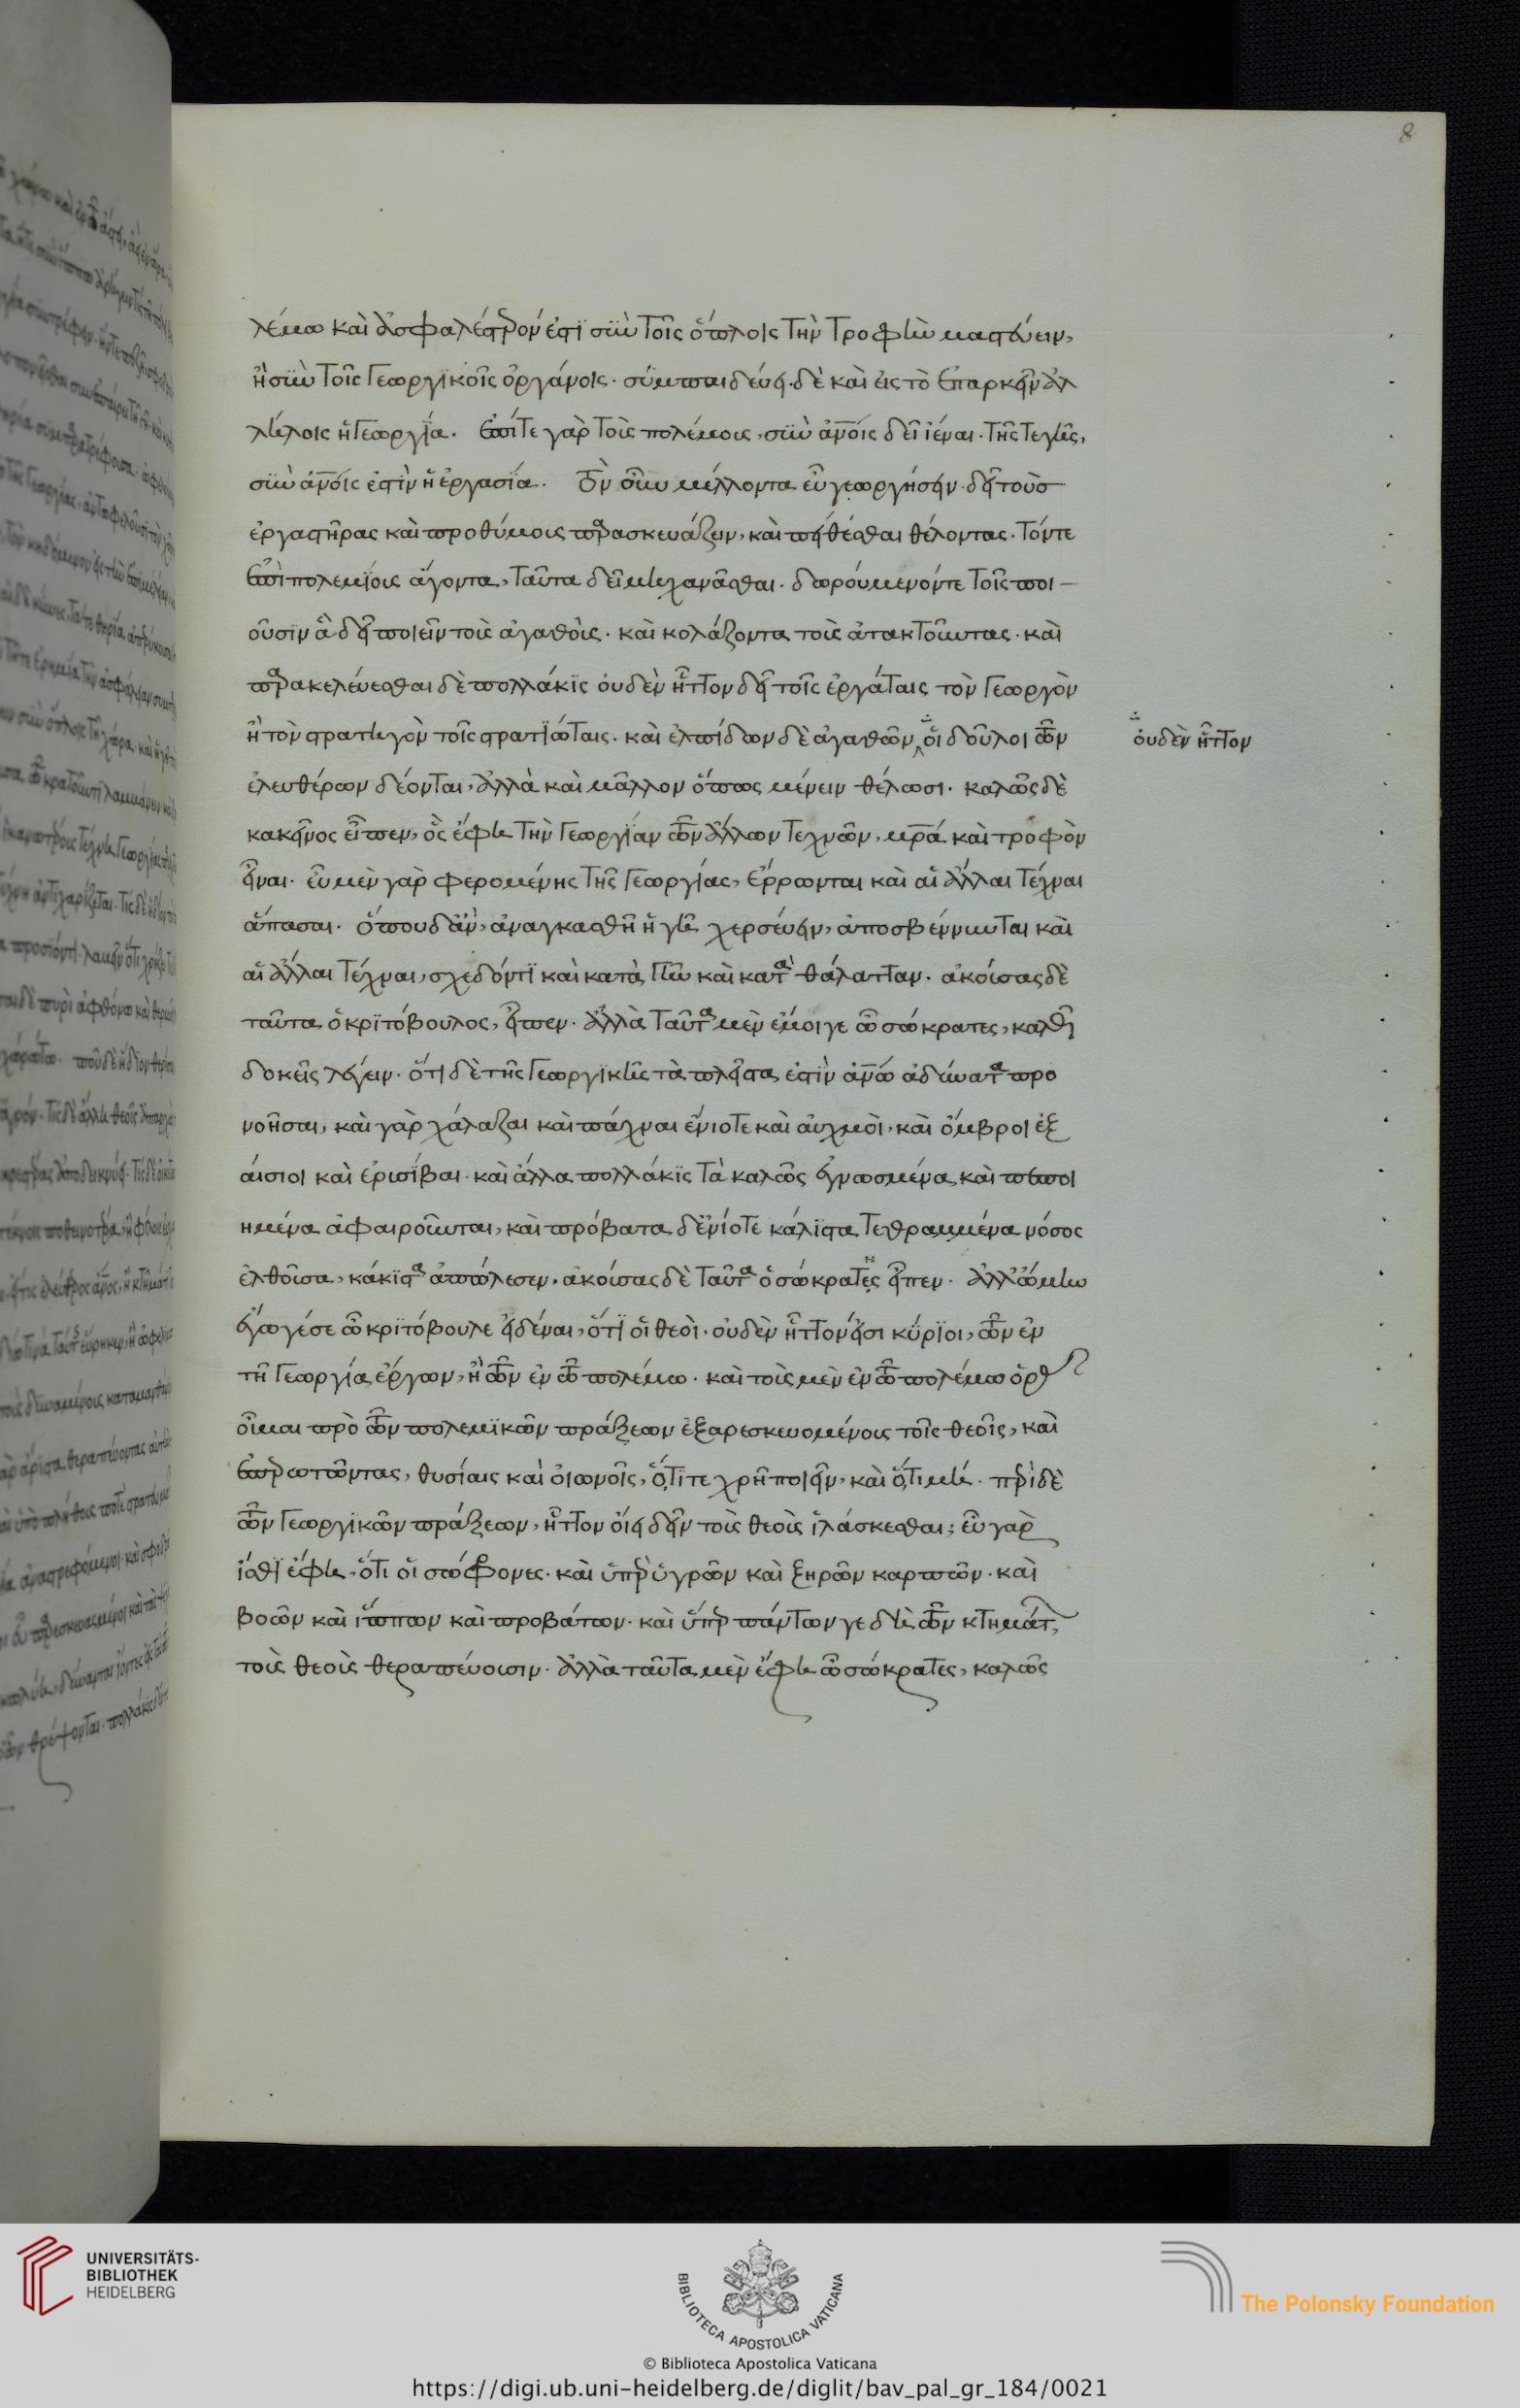 8
λέμω καὶ ἀσφαλέστερόν ἐστι σὺν τοῖς ὅπλοις τὴν τροφὴν μαστεύειν,
ἢ σὺν τοῖς γεωργϊκοῖς ὀργάνοις· συμπαιδεύει δὲ καὶ εἰς τὸ ἐπαρκεῖν ἀλ
λήλοις ἡ γεωργΐα. ἐπί τε γὰρ τοὺς πολέμους, σὺν ἀνοῖς δεῖ ἰέναι· τῆς τε γῆς,
σὺν ἀνοῖς ἐστὶν ἡ ἐργασΐα. τὸν οὖν μέλλοντα εὖ γεωργήσειν· δεῖ τοὺσ
ἐργαστῆρας καὶ προθύμους παρασκευάζειν, καὶ πείθεσθαι θέλοντας. τόν τε
ἐπὶ πολεμΐους ἄγοντα, ταῦτα δεῖ μηχανᾶσθαι· δωρούμενόν τε τοῖς ποι-
οῦσϊν ἃ δεῖ ποιεῖν τοὺς ἀγαθοὺς· καὶ κολάζοντα τοὺς ἀτακτοῦντας· καὶ
παρακελεύεσθαι δὲ πολλάκϊς οὐδὲν ἧττον δεῖ τοῖς ἐργάταις τὸν γεωργὸν
ἢ τὸν στρατηγὸν τοῖς στρατϊώταις· καὶ ἐλπίδων δὲ ἀγαθῶν οἱ δοῦλοι τῶν
οὐδὲν ἧττον
ἐλευθέρων δέονται, ἀλλὰ καὶ μᾶλλον ὅπως μένειν θέλωσι. καλῶς δὲ
κακεῖνος εἶπεν, ὃς ἔφη τὴν γεωργΐαν τῶν ἄλλων τεχνῶν, μρά καὶ τροφὸν
εἶναι. εὖ μὲν γὰρ φερομένης τῆς γεωργΐας, ἔρρωνται καὶ αἱ ἄλλαι τέχναι
ἅπασαι. ὅπου δ' ἂν, ἀναγκασθῆ ἡ γῆ χερσεύειν, ἀποσβέννυνται καὶ
αἱ ἄλλαι τέχναι, σχεδόν τϊ καὶ κατὰ γῆν καὶ κατὰ θάλατταν. ἀκούσας δὲ
ταῦτα ὁ κρϊτόβουλος, εἶπεν· ἀλλὰ ταῦτα μὲν ἔμοιγε ὦ σώκρατες, καλῶς
δοκεῖς λέγειν· ὅτι δὲ τῆς γεωργϊκῆς τὰ πλεῖστα ἐστὶν ἀνω ἀδύνατα προ
νοῆσαι, καὶ γὰρ χάλαζαι καὶ πάχναι ἐνίοτε καὶ αὐχμοὶ, καὶ ὄμβροι ἐξ
αίσιοι καὶ ἐρισίβαι· καὶ ἄλλα πολλάκϊς τὰ καλῶς ἐγνωσμένα καὶ πεποι
ημένα ἀφαιροῦνται, καὶ πρόβατα δ' ἐνίοτε κάλϊστα τεθραμμένα νόσος
ἐλθοῦσα, κάκϊστα ἀπώλεσεν. ἀκούσας δὲ ταῦτα ὁ σωκράτης εἶπεν· ἀλλ' ᾤμην
ἔγωγέ σε ὦ κρϊτόβουλε εἰδέναι, ὅτϊ οἱ θεοὶ· οὐδὲν ἧττόν εἰσι κύρϊοι, τῶν ἐν
τῆ γεωργΐα ἔργων, ἢ τῶν ἐν τῶ πολέμω. καὶ τοὺς μὲν ἐν τῶ πολέμω ὁρᾶς
οἶμαι πρὸ τῶν πολεμϊκῶν πράξεων ἐξαρεσκευομένους τοῖς θεοῖς, καὶ
ἐπερωτῶντας, θυσίαις καὶ οἰωνοῖς, ὅ,τϊ τε χρῆ ποιεῖν, καὶ ὅ,τι μή. περὶ δὲ
τῶν γεωργϊκῶν πράξεων, ἧττον οἴει δεῖν τοὺς θεοὺς ἱλάσκεσθαι; εὖ γὰρ
ἴσθϊ ἔφη, ὅτι οἱ σώφρονες· καὶ ὑπὲρ ὑγρῶν καὶ ξηρῶν καρπῶν· καὶ
βοῶν καὶ ἵππων καὶ προβάτων· καὶ ὑπὲρ πάντων γε δὴ τῶν κτημάτων,
τοὺς θεοὺς θεραπεύουσιν. ἀλλὰ ταῦτα μὲν ἔφη ὦ σώκρατες, καλῶς
UNIVERSITÄTS-
BIBLIOTHEK
HEIDELBERG
BIBLIOTECA APOSTOLICA VATICANA
The Polonsky Foundation
© Biblioteca Apostolica Vaticana
https://digi.ub.uni-heidelberg.de/diglit/bav_pal_gr_184/0021